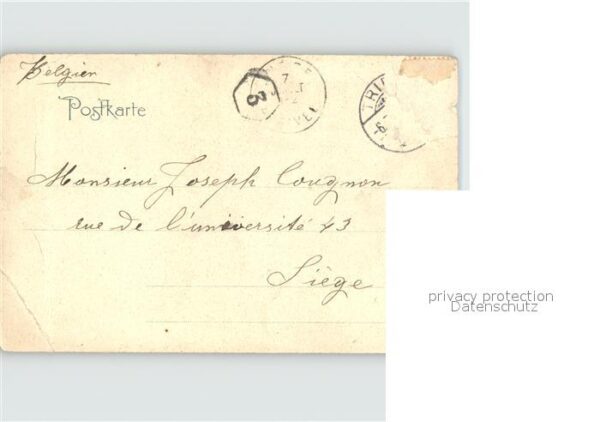 Belgien
Postkarte
3
7
TRI
Monsieur Joseph Cougnon
rue de l'université 43
Liège
privacy protection
Datenschutz